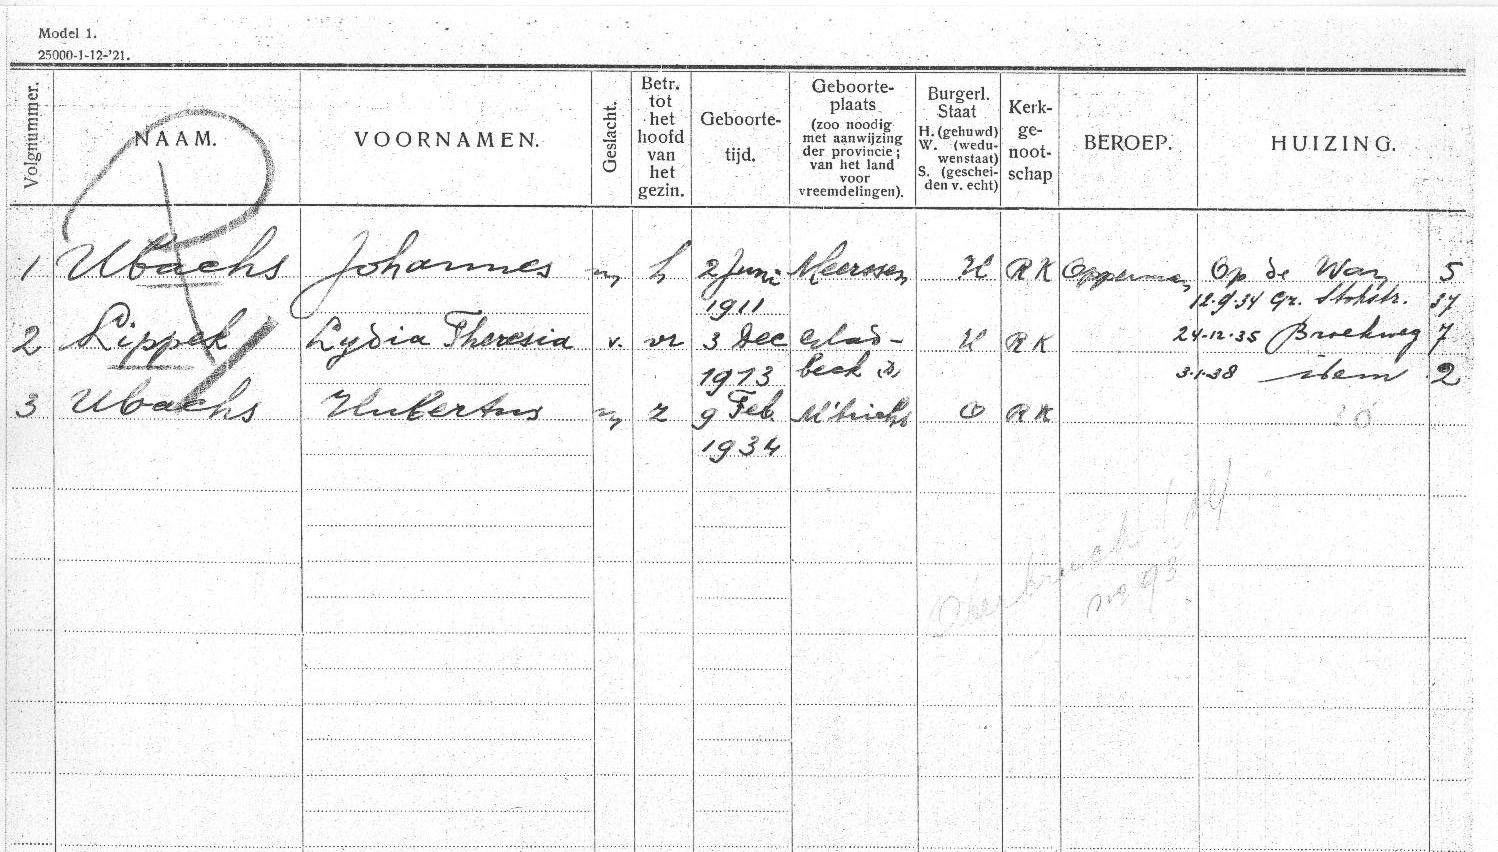 Model 1.
25000-1-12-'21.
Volgnummer.
NAAM.
VOORNAMEN.
Geslacht.
Betr.
tot
het
hoofd
van
het
gezin.
Geboorte-
tijd.
Geboorte-
plaats
(zoo noodig
met aanwijzing
der provincie;
van het land
voor
vreemdelingen).
Burgerl.
Staat
H. (gehuwd)
W. (wedu-
wenstaat)
S. (geschei-
den v. echt)
Kerk-
ge-
noot-
schap
BEROEP.
HUIZING.
1 Ubachs Johannes m h 2 Juni Meerssen H RK Opperman Op de Wan 5
1911 12-9-34 Gr. Stokstr. 37
2 Lippek Lydia Theresia v. vr 3 Dec Glad- H RK 24-12-35 Broekweg 7
1913 beck 3-1-38 idem 2
3 Ubachs Hubertus m z 9 Feb. M'tricht O RK
1934
no 93